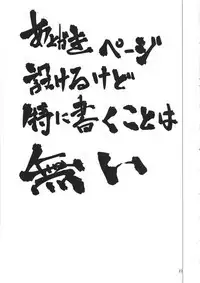 あとがきページ
設けるけど
特に書くことは
無い